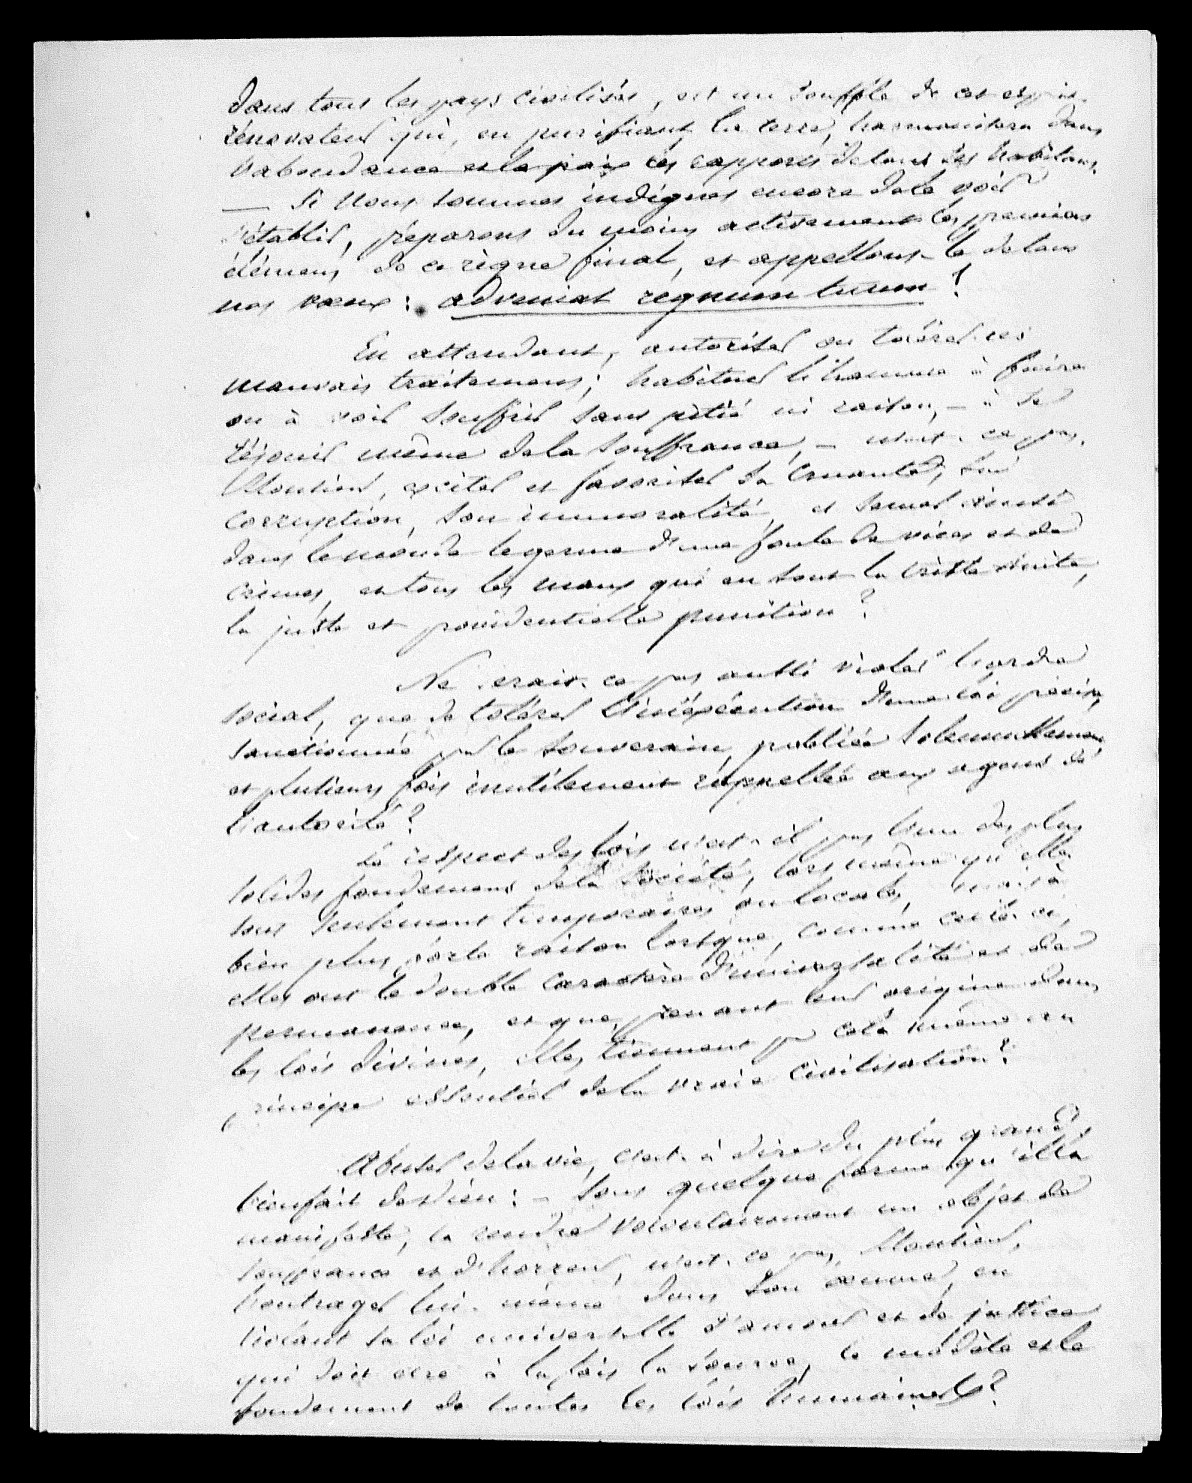 dans tous les pays civilisés, est un souffle de cet esprit
rénovateur qui, en purifiant la terre, harmonisera dans
l'abondance et la paix les rapports de tous ses habitans.
— Si nous sommes indignes encore de le voir
s'établir, préparons du moins activement les premiers
élémens de ce règne final, et appellons-le de tous
nos vœux : adveniat regnum tuum !
En attendant, autoriser ou tolérer ces
mauvais traitemens ; habituer l'homme à faire
ou à voir souffrir sans pitié ni raison, — à se
réjouir même de la souffrance, — n'est-ce pas,
Messieurs, exciter et favoriser sa cruauté, sa
corruption, son immoralité, et semer ainsi
dans le monde le germe d'une foule de vices et de
crimes, et tous les maux qui en sont la triste suite,
la juste et providentielle punition ?
Ne serait-ce pas aussi violer l'ordre
social, que de tolérer l'inexécution d'une loi précise,
sanctionnée par le souverain, publiée solemnellement
et plusieurs fois inutilement rappellée aux agens de
l'autorité ?
Le respect des lois n'est-il pas l'un des plus
solides fondemens de la société, lors même qu'elles
sont seulement temporaires ou locales, mais à
bien plus forte raison lorsque, comme celle-ci,
elles ont le double caractère d'universalité et de
permanence, et que, prenant leur origine dans
les lois divines, elles tiennent par cela même au
principe essentiel de la vraie civilisation ?
Abuser de la vie, c'est-à-dire du plus grand
bienfait de Dieu : — sous quelque forme qu'il la
manifeste, la rendre volontairement un objet de
souffrance et d'horreur, n'est-ce pas, Messieurs,
l'outrager lui-même dans son œuvre, en
violant sa loi universelle d'amour et de justice
qui doit être à la fois la source, le modèle et le
fondement de toutes les lois humaines ?